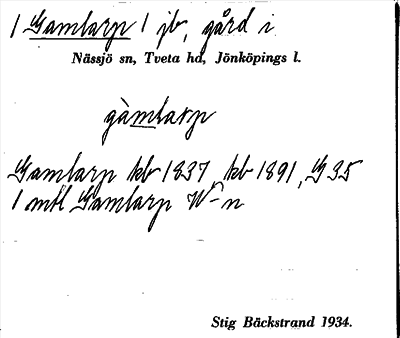 1 Gamlarp 1 jb, gård i
Nässjö sn, Tveta hd, Jönköpings l.
gàmlarp
Gamlarp kb 1837, kb 1891, G 35
1 mtl Gamlarp W-n
Stig Bäckstrand 1934.